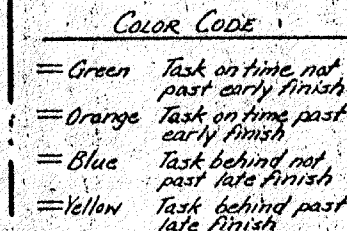 COLOR CODE
= Green Task on time not
past early finish
= Orange Task on time past
early finish
= Blue Task behind not
past late finish
= Yellow Task behind past
late finish